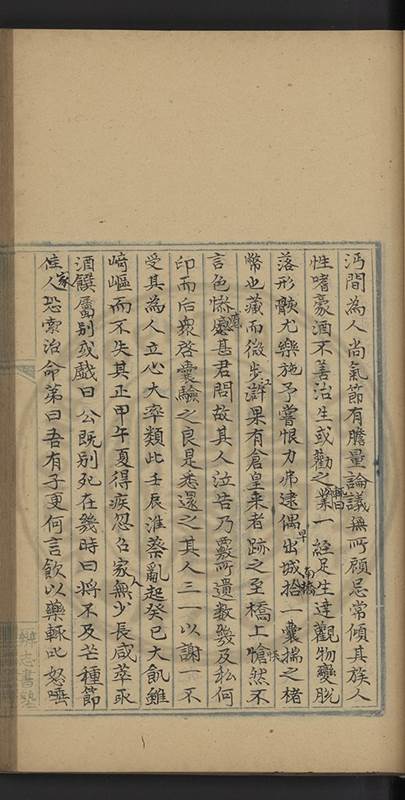 沔間為人尚氣節有膽量論議無所顧忌常傾其族人
性嗜豪酒不善治生或勸之業輒曰一經足生達觀物變脫
落形骸尤樂施予嘗恨力弗逮偶早出城南橋拾一囊揣之楮
幣也藏而微步辟果有倉皇来者跡之至橋上愴然不
言色慘甚君問故其人泣告乃覈所遺数幾及私何
印而后衆啓囊驗之良是悉還之其人三一以謝一不
受其為人立心大率類此壬辰淮蔡亂起癸巳大飢雖
崎嶇而不失其正甲午夏得疾忽召家人無少長咸萃取
酒饌屬别或戲曰公既别死在幾時曰将不及芒種節
家人恐索治命第曰吾有子更何言飲以藥輒此怒唾
辨志書塾